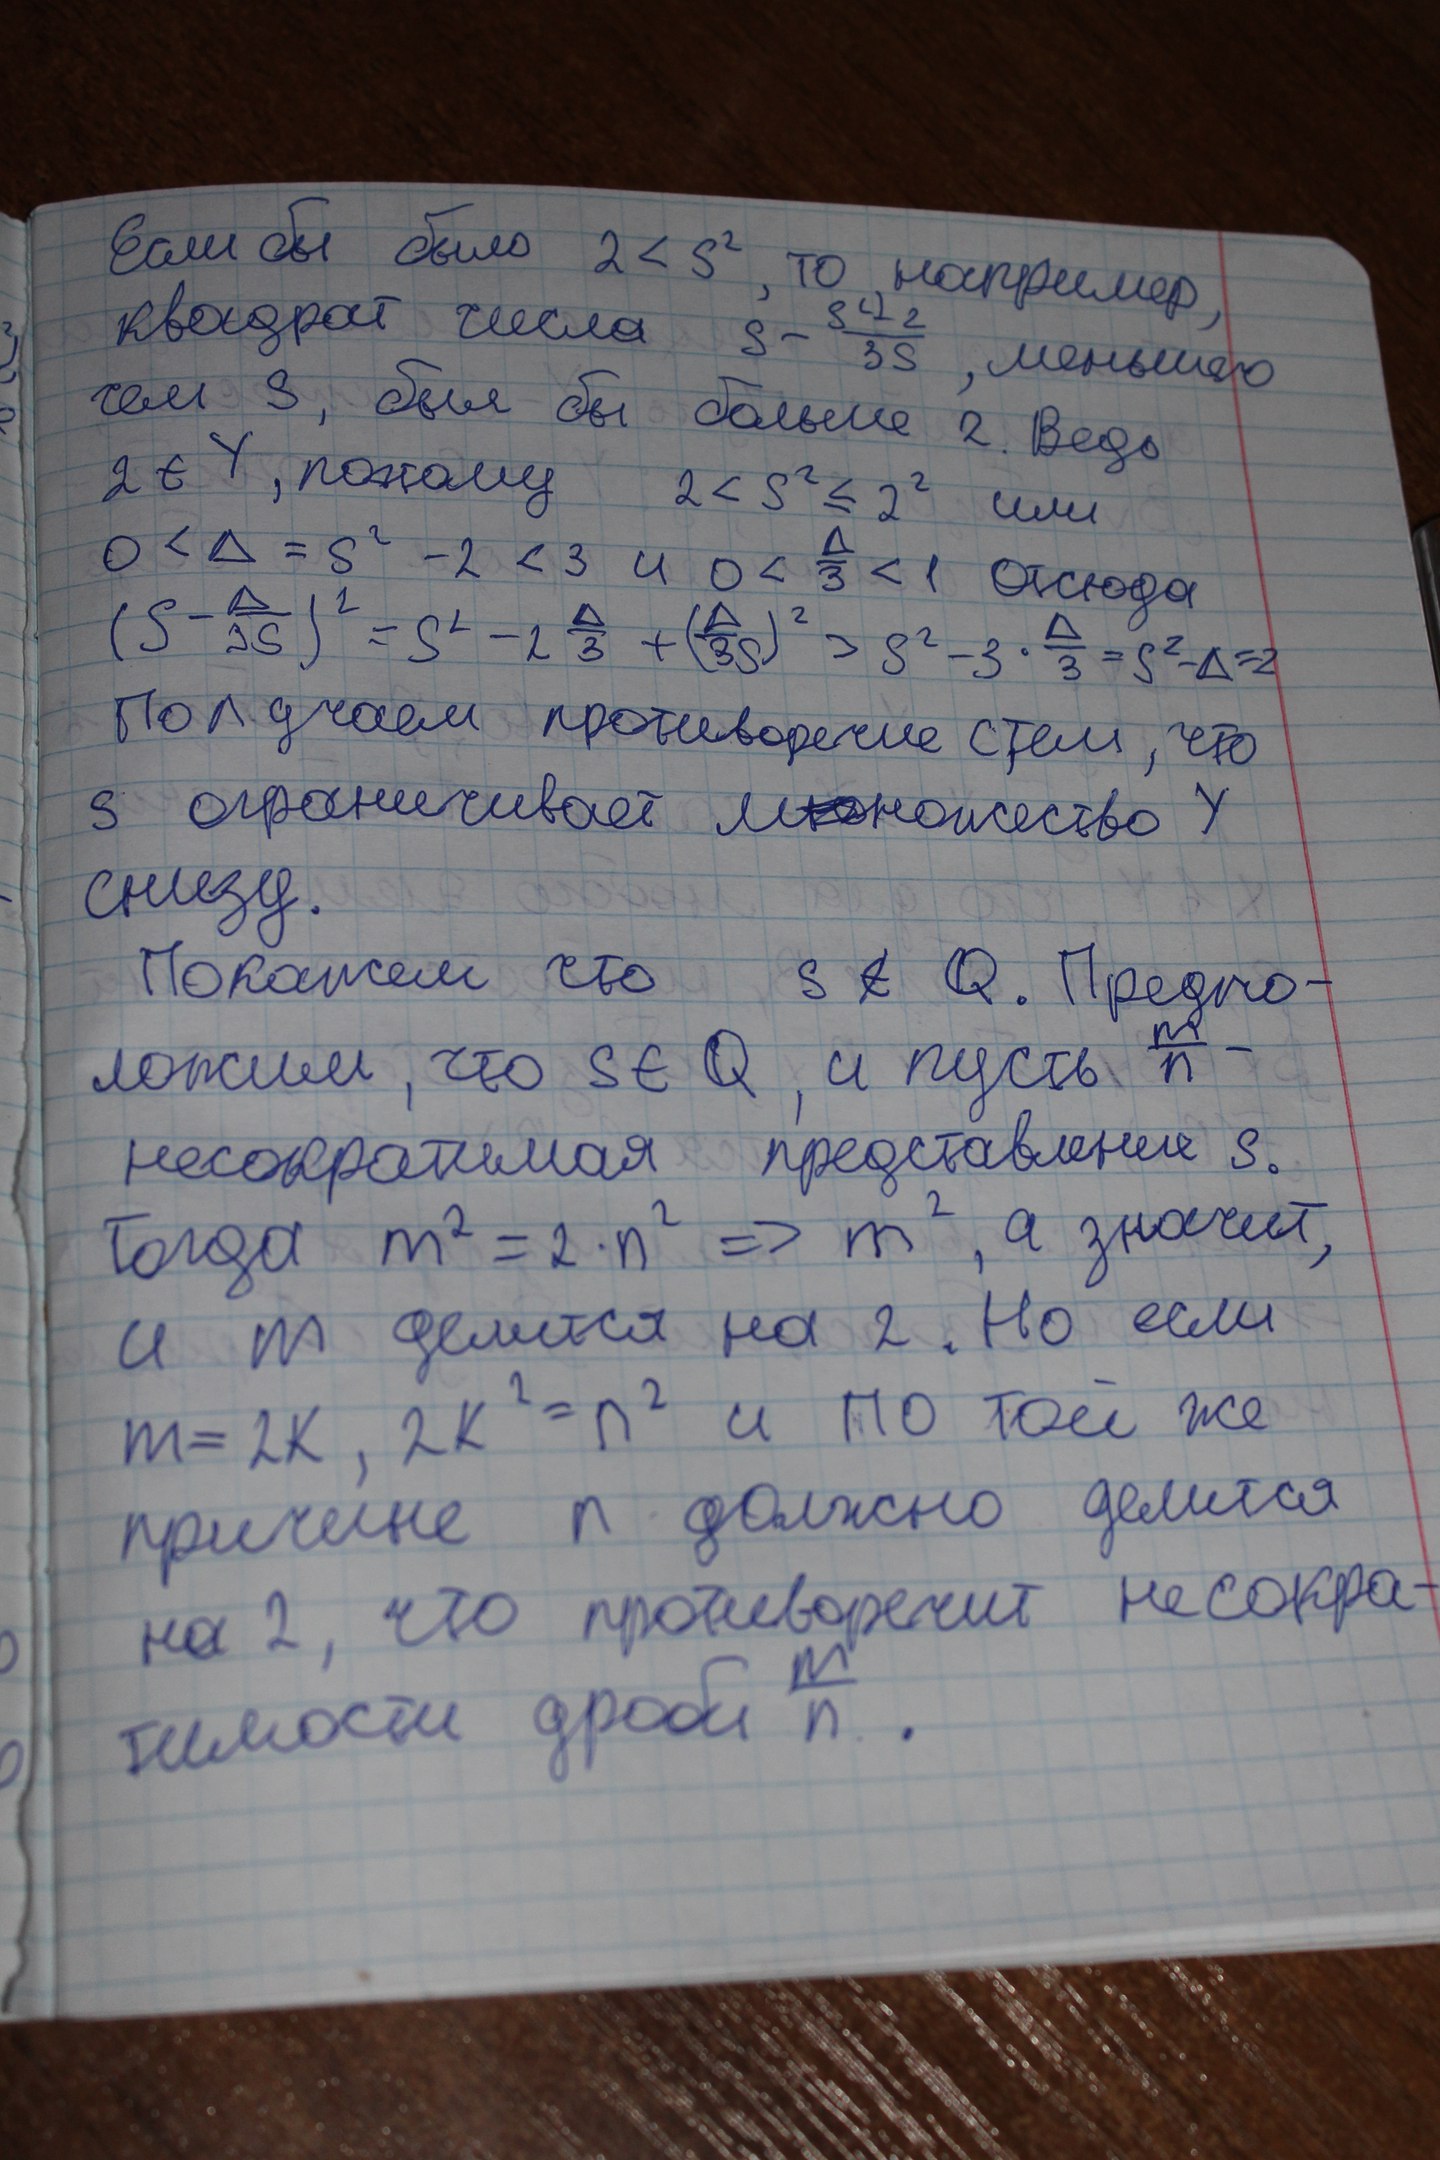 Если бы было 2 < S², то, например,
квадрат числа S - (S²-2)/3S, меньшего
чем S, был бы больше 2. Ведь
2 ∈ Y, поэтому 2 < S² ≤ 2² или
0 < Δ = S² - 2 < 3 и 0 < Δ/3 < 1 Отсюда
(S - Δ/3S)² = S² - 2 Δ/3 + (Δ/3S)² > S² - 3 · Δ/3 = S² - Δ = 2
Получаем противоречие с тем, что
s ограничивает множество Y
снизу.
Покажем что s ∉ Q. Предпо-
ложим, что S ∈ Q, и пусть m/n -
несократимая представление s.
Тогда m² = 2·n² => m², а значит,
и m делится на 2. Но если
m = 2K, 2K² = n² и по той же
причине n должно делится
на 2, что противоречит несокра-
тимости дроби m/n.